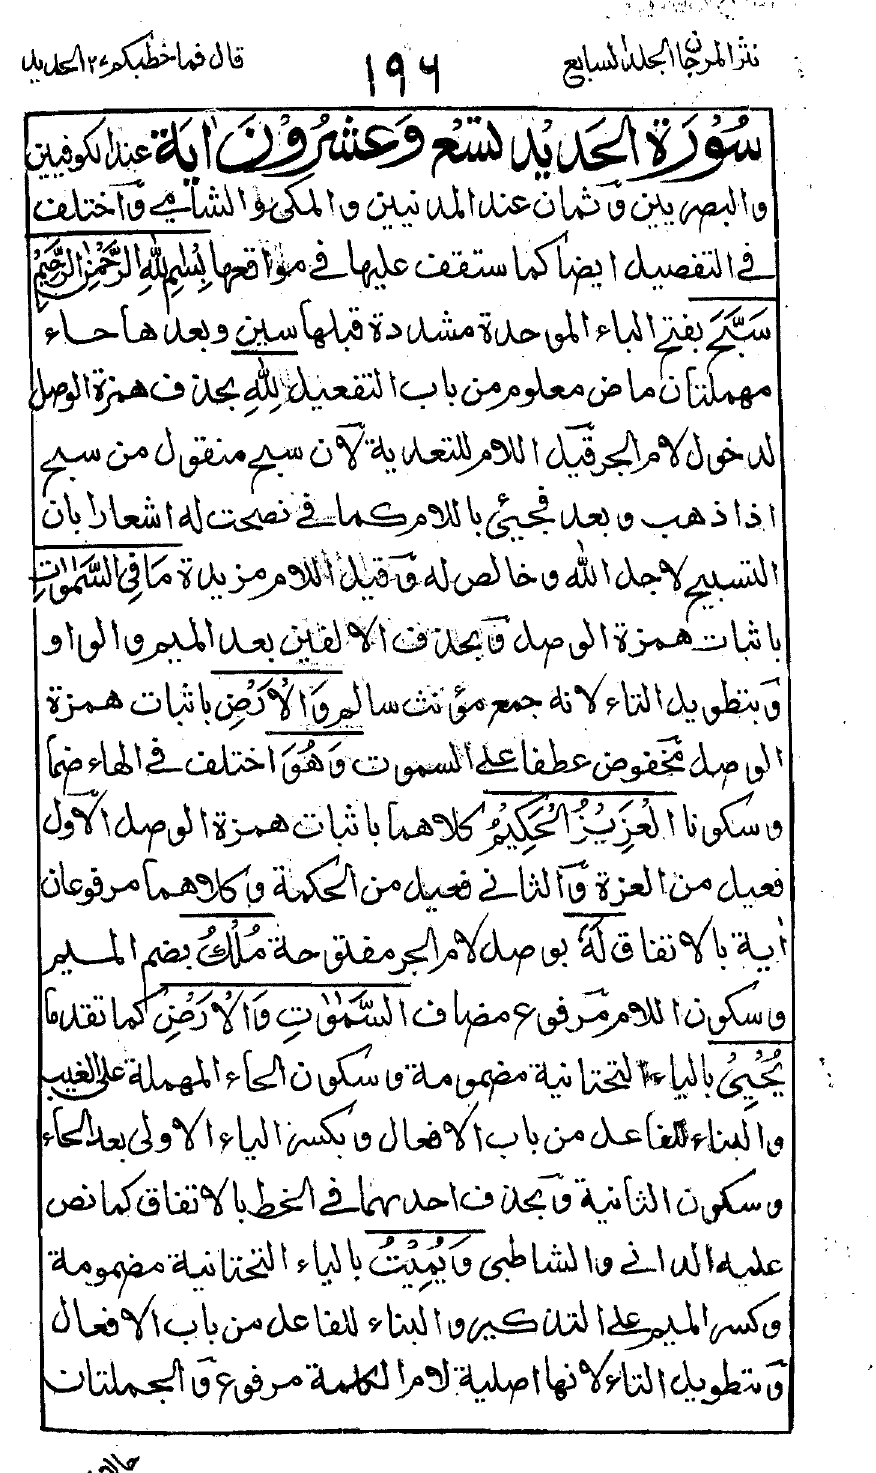 نثر المرجان المجلد السابع
١٩٦
قال فما خطبكم ٢٧ الحديد
سُوْرَة الحَديْد تسْع وَعشرُوْنَ اٰيَة عند الكوفيين
والبصريين وَّثمان عند المدنيين والمكى والشامي وَاختلف
في التفصيل ايضا كما ستقف عليها في مواقعها بِسْمِ اللهِ الرَّحْمٰنِ الرَّحِيْمِ
سَبَّحَ بفتح الباء الموحدة مشددة قبلها سين وبعدها حاء
مهملتان ماض معلوم من باب التفعيل لِلّٰهِ بحذف همزة الوصل
لدخول لام الجر قيل اللام للتعدية لان سبح منقول من سبح
اذا ذهب وبعد فجيئ باللام كما في نصحت له اشعارا بان
التسبيح لاجل الله وخالص له وَقيل اللام مزيدة مَا فِي السَّمٰوٰتِ
باثبات همزة الوصل وَبحذف الالفين بعد الميم والواو
وَبتطويل التاء لانه جمع مؤنث سالم وَالْاَرْضِ باثبات همزة
الوصل مخفوض عطفا على السموت وَهُوَ اختلف في الهاء ضما
وسكونا الْعَزِيْزُ الْحَكِيْمُ كلاهما باثبات همزة الوصل الاول
فعيل من العزة وَالثاني فعيل من الحكمة وكلاهما مرفوعان
اٰية بالاتفاق لَهٗ بوصل لام الجر مفتوحة مُلْكُ بضم الميم
وسكون اللام مرفوع مضاف السَّمٰوٰتِ وَالْاَرْضِ كما تقدما
يُحْيِيْ بالياء التحتانية مضمومة وسكون الحاء المهملة على الغيب
والبناء للفاعل من باب الافعال وبكسر الياء الاولى بعد الحاء
وسكون الثانية وَبحذف احدىهما في الخط بالاتفاق كما نص
عليه الداني والشاطبى وَيُمِيْتُ بالياء التحتانية مضمومة
وكسر الميم على التذكير والبناء للفاعل من باب الافعال
وَبتطويل التاء لانها اصلية لام الكلمة مرفوع وَالجملتان